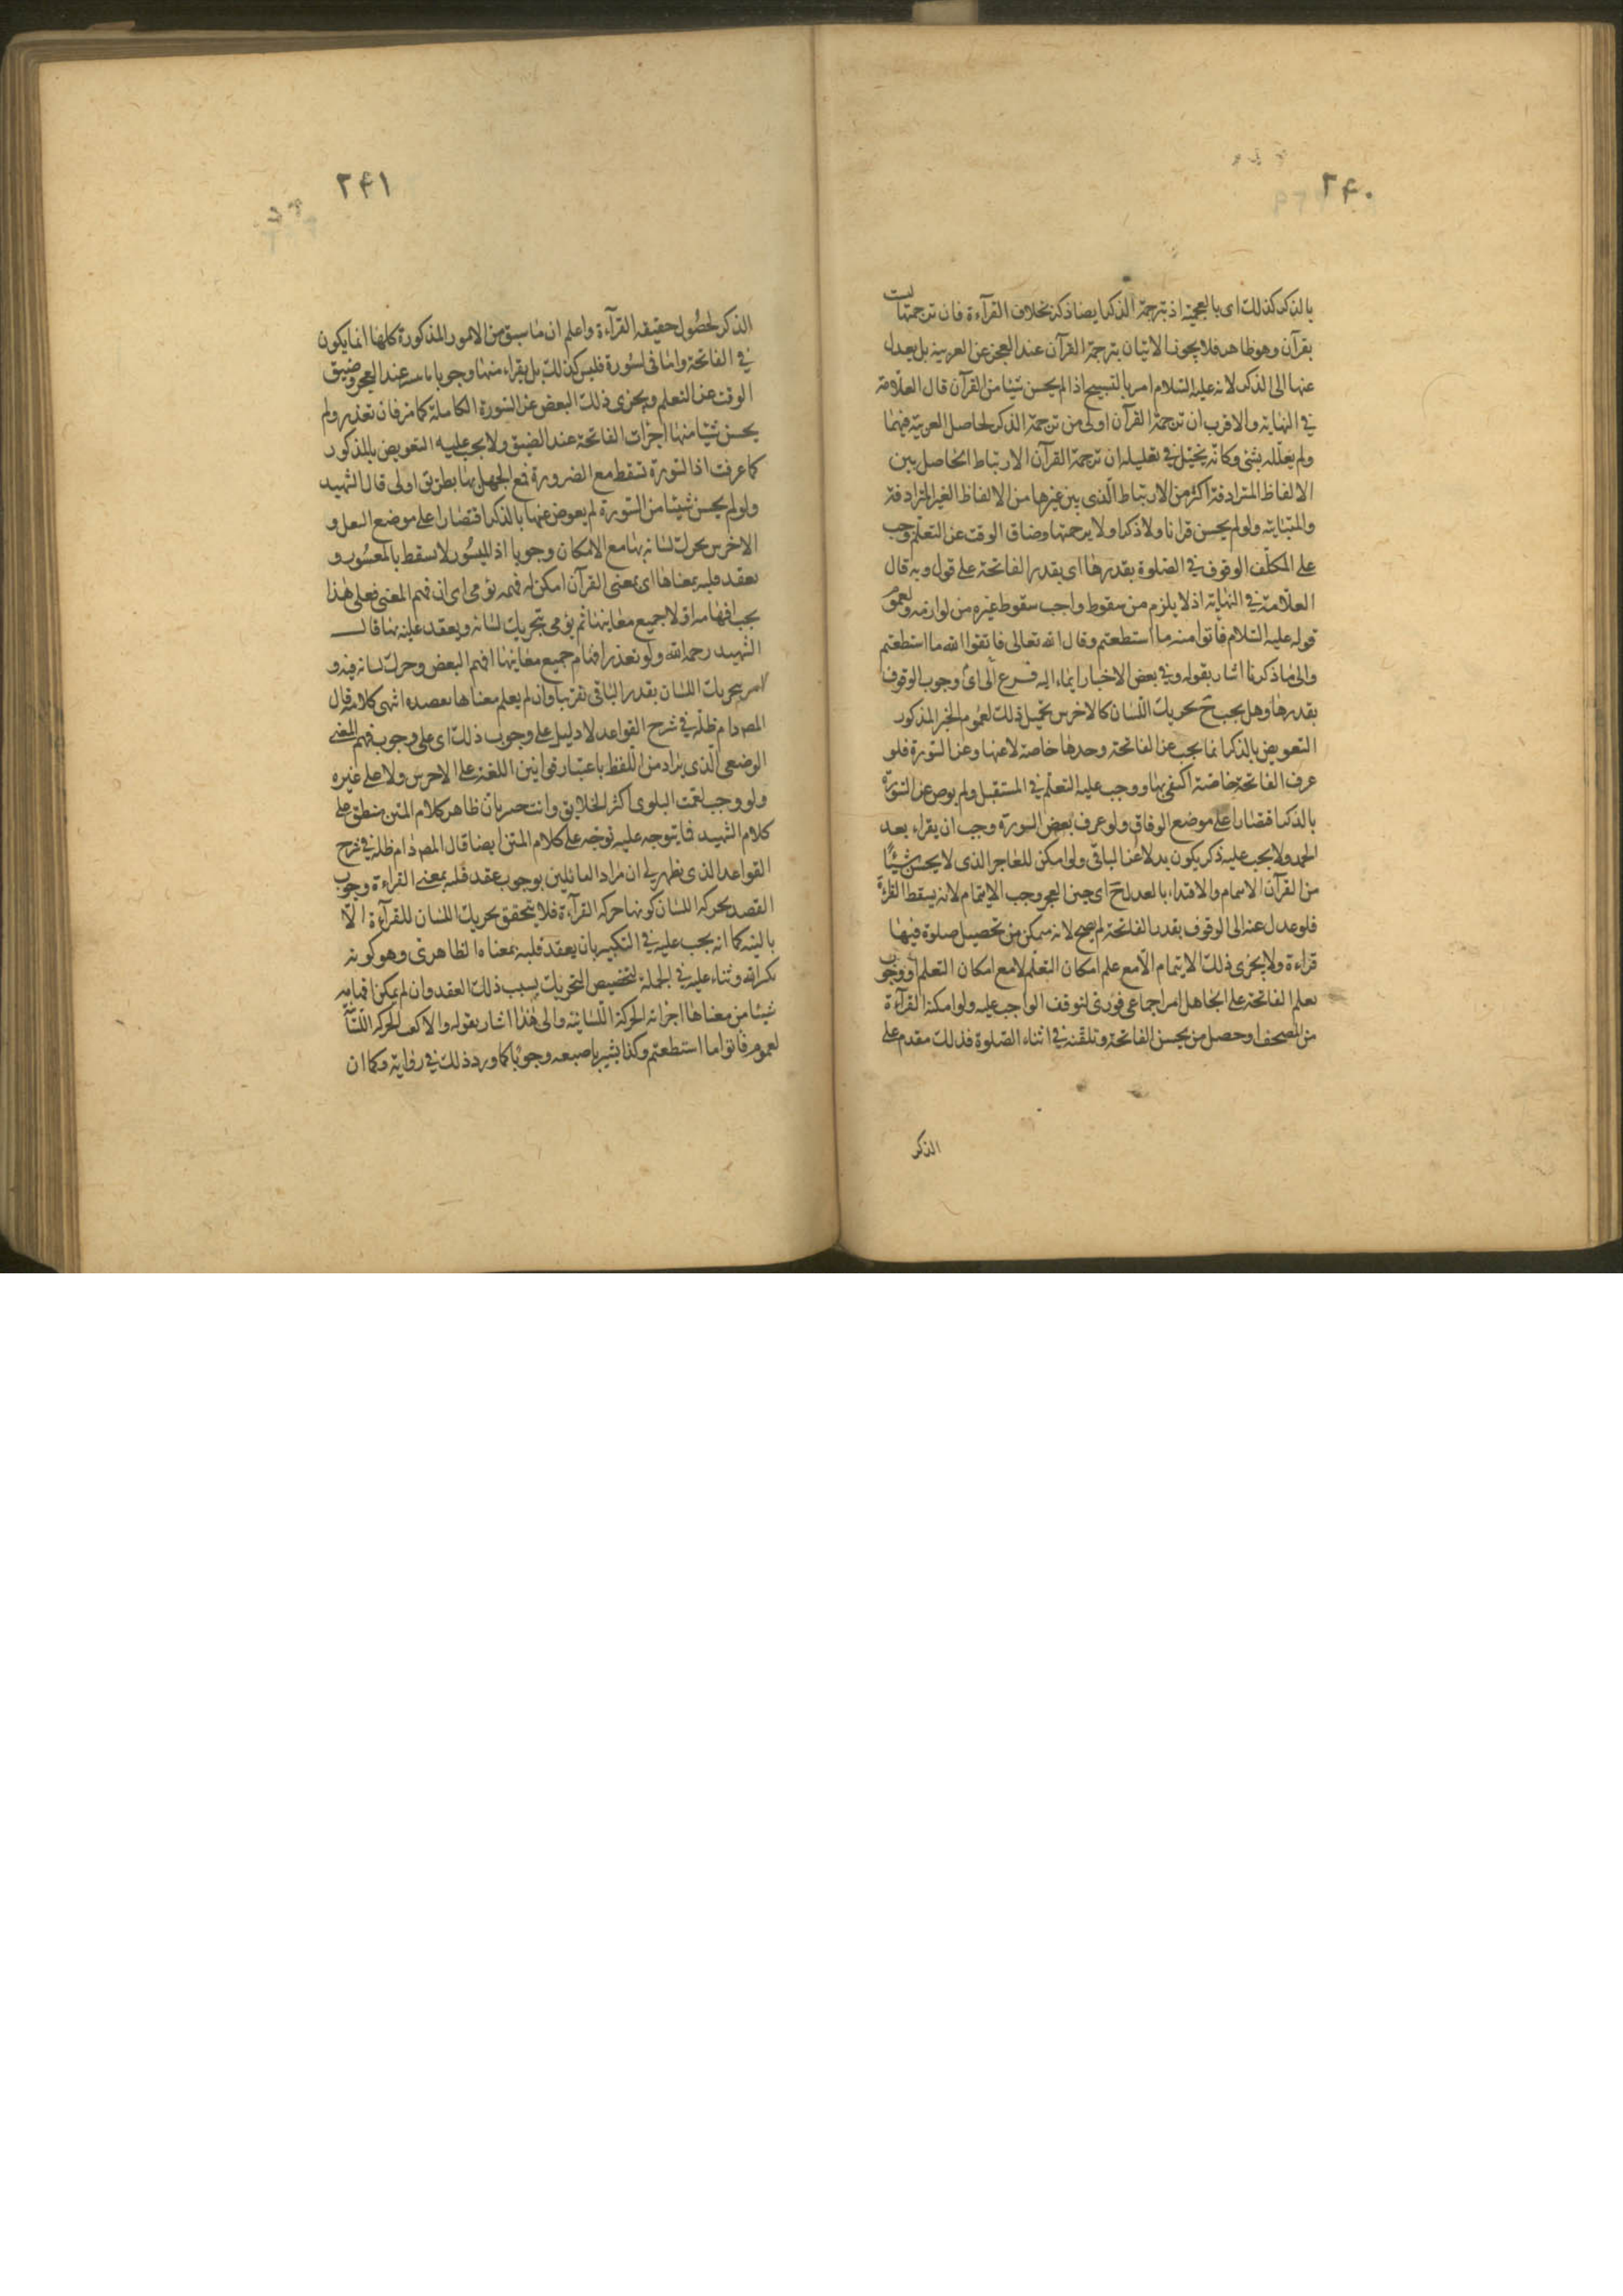 ٢۴٠
بالذكر كذلك اى بالعجمية اذ ترجمة الذكر ايضا ذكر بخلاف القرآءة فان ترجمتها ليست
بقرآن وهو ظاهر فلا يجوز الاتيان بترجمة القرآن عند العجز عن العربية بل يعدل
عنها الى الذكر لانه عليه السلام امر بالتسبيح اذا لم يحسن شيئا من القرآن قال العلّامة
في النهاية والاقرب ان ترجمة القرآن اولى من ترجمة الذكر لحاصل العربية فيهما
ولم يعلّله بشئ وكانّه يتخيّل في تعليله ان ترجمة القرآن الارتباط الحاصل بين
الالفاظ المترادفة اكثر من الارتباط الّذى بين غيرها من الالفاظ الغير المترادفة
والمتباينة ولو لم يحسن قرانا ولا ذكرا ولا ترجمتها وضاق الوقت عن التعلّم وجب
على المكلّف الوقوف في الصّلوة بقدرها اى بقدر الفاتحة على قول وبه قال
العلّامة في النهاية اذ لا يلزم من سقوط واجب سقوط غيره من لوازمه ولعموم
قوله عليه السّلام فأتوا منه ما استطعتم وقال الله تعالى فاتقوا الله ما استطعتم
والى ما ذكرنا اشار بقوله وفي بعض الاخبار ايماء اليه فرع الى اى وجوب الوقوف
بقدرها وهل يجب ح تحريك اللّسان كالاخرس يحتمل ذلك لعموم الخبر المذكور
التعويض بالذكر انما يجب عن الفاتحة وحدها خاصة لا عنها وعن السّورة فلو
عرف الفاتحة خاصّة اكتفى بها ووجب عليه التعلّم في المستقبل ولم يعوض عن السّورة
بالذكر اقتصارا على موضع الوفاق ولو عرف بعض السّورة وجب ان يقراء بعد
الحمد ولا يجب عليه ذكر يكون بدلا عن الباقى ولو امكن للعاجز الذى لا يحسن شيئًا
من القرآن الايتمام والاقتداء بالعدل ح اى حين العجز وجب الايتمام لانه يسقط القراءة
فلو عدل عنه الى الوقوف بقدر الفاتحة لم يصح لانه متمكن من تحصيل صلوة فيها
قراءة ولا يجزى ذلك الايتمام الّا مع علم امكان التعلّم لا مع امكان التعلم ووجوب
تعلم الفاتحة على الجاهل امر اجماعى فورىّ لتوقف الواجب عليه ولو امكنه القرآءة
من المصحف او حصل من يحسن الفاتحة وتلقّنه في اثناء الصّلوة فذلك مقدم على
الذكر
٢۴١
الذكر لحصُول حقيقه القرآءة واعلم ان ما سبق من الامور المذكورة كلها انما يكون
في الفاتحة وامّا فى السّورة فليس كذلك بل يقراء منها وجوبا ما تيسر عند العجز وضيق
الوقت عن التعلم ويجزى ذلك البعض عن السّورة الكاملة كما مرّ فان تعذر ولم
يحسن شيئا منها اجزأت الفاتحة عند الضيق ولا يجب عليه التعويض بالمذكور
كما عرفت اذ السّورة تسقط مع الضرورة فمع الجهل بها بطريق اولى قال الشهيد
ولو لم يحسن شيئا من السّورة لم يعوض عنها بالذكر اقتصارا على موضع النقل و
الاخرس يحرك لسانه بها مع الامكان وجوبا اذ الميسُور لا يسقط بالمعسُور و
يعقد قلبه بمعناها اى بمعنى القرآن امكن له فهمه يؤمى اى ان فهم المعنى فعلى هٰذا
يجب افهامه اوّلا جميع معانيها ثم يؤمى بتحريك لسانه ويعقد قلبه بها قال
الشهيد رحمه الله ولو تعذر افهام جميع معانيها افهم البعض وحرك لسانه فيه و
امر بتحريك اللسان بقدر الباقى تقريبا وان لم يعلم معناها بعضده انتهى كلامه قال
المص دام ظلّه في شرح القواعد لا دليل على وجوب ذلك اى على وجوب فهم المعنى
الوضعى الّذى يراد من اللّفظ باعتبار قوانين اللغة على الاخرس ولا على غيره
ولو وجب لعمّت البلوى اكثر الخلايق وانت خبير بانّ ظاهر كلام المتن منطبق على
كلام الشهيد فما يتوجه عليه توجّه على كلام المتن ايضا قال المص دام ظلّه في شرح
القواعد الذى يظهر لى ان مراد القائلين بوجوب عقد قلبه بمعنى القراءة وجوب
القصد بحركة اللسان كونها حركه القرآءة فلا يتحقق تحريك اللسان للقرآءة الّا
بالنيه كما انه يجب عليه في التكبير بان يعقد قلبه بمعناه الظاهرى وهو كونه
تكبيرا لله وثناء عليه في الجملة لتخصيص التحريك بسبب ذلك العقد وان لم يمكن افهامه
شيئا من معناها اجزاته الحركة اللّسانية والى هٰذا اشار بقوله والّا كفت الحركه اللّسانيّة
لعموم فأتوا ما استطعتم وكذا يشير باصبعه وجوبًا كما ورد ذلك في رواية وكما ان